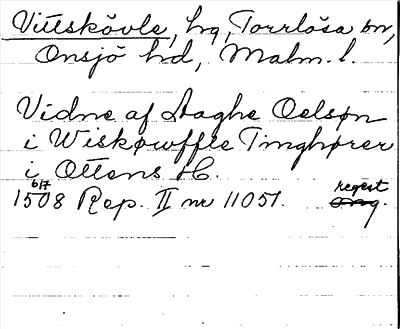 Vittskövle, hg, Torrlösa sn,
Onsjö hd, Malm. l.
Vidne af Aaghe Oelsøn
i Wiskøwffle Tinghører
i Ottens H.
6/7
1508 Rep. II nr 11051. regest